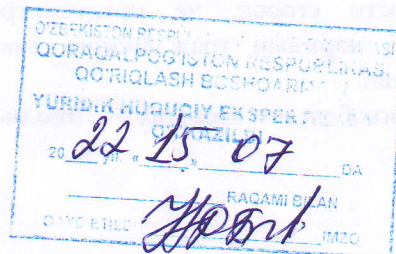 O'ZBEKISTON RESPU
QORAQALPOG'ISTON RESPUBLIKASI
QO'RIQLASH BOSHQARMA
YURIDIK HUQUQIY EKSPER
O'TKAZILDI
20 22 yil. « 15 » 07 DA
RAQAMI BILAN
QAYD ETILDI IMZO